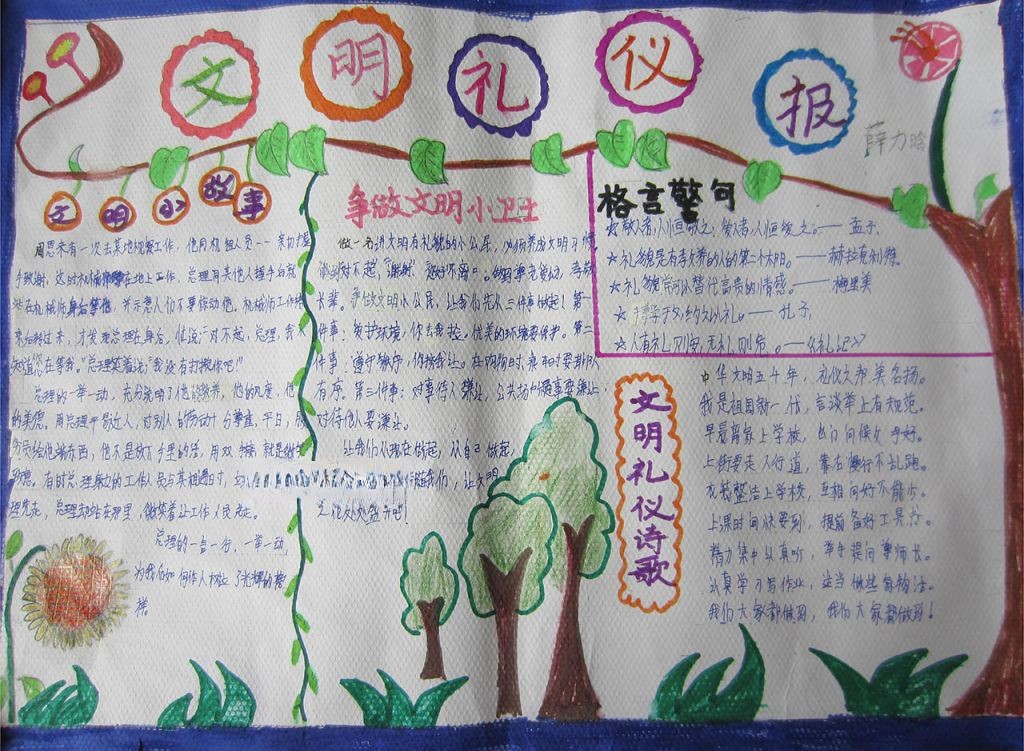 文明礼仪报
薛力晗
文明小故事
周恩来有一次去某地视察工作，他同机组人员一一亲切握
手致谢，这时机械师正在地上工作，总理同其他人握手后就
站在机械师身后等他，并示意人们不要惊动他。机械师工作结
束后转过来，才发现总理在身后，忙说："对不起，总理，我不
知道您在等我。"总理笑着说："我没有打扰你吧！"
总理的一举一动，充分说明了他的修养，他的风度，他
的美德。周总理平易近人，对别人的劳动十分尊重，平日，服
务员给他端东西，他不是放下手里的
有时总理
总理却站在那里，微笑着让工作人员先走。
总理的一言一行，一举一动，
为我们如何作人树立了光辉的榜
样。
争做文明小卫士
做一名讲文明有礼貌的小公民，必须养成文明习惯
做到对不起，"谢谢"，您好不离口。
长辈。争做文明小公民，让我们先从三件事做起！第一
件事：爱护环境，你丢我捡，优美的环境要保护。第二
件事：遵守秩序，你挤我让。在购物时、乘车时要排队
有序。第三件事：对事待人谦让，公共场和遇事要谦让
好待他人要谦让。
让我们从现在做起，从自己做起，
让文明
之花处处盛开吧！
格言警句
☆敬人者，人恒敬之，爱人者，人恒爱之。——孟子
☆礼貌是有教养的人的第二个太阳。——赫拉克利特。
☆礼貌常可以替代高贵的情感。——梅里美
☆博学于文，约之以礼。——孔子
☆人有礼则安，无礼则危。——《礼记》
文明礼仪诗歌
中华文明五千年，礼仪之邦美名扬。
我是祖国新一代，言谈举止有规范。
早晨离家上学校，出门问候父母好。
上街要走人行道，靠右慢行不乱跑。
衣装整洁上学校，互相问好不能少。
上课时间快要到，提前备好工具袋。
精力集中认真听，举手提问尊师长。
认真学习写作业，适当做些家务活。
我们大家都做到，我们大家都做到！